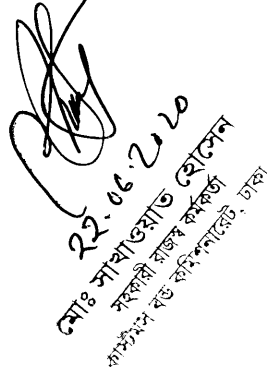 22.06.2020
মোঃ সাখাওয়াত হোসেন
সহকারী রাজস্ব কর্মকর্তা
কাস্টমস বন্ড কমিশনারেট, ঢাকা